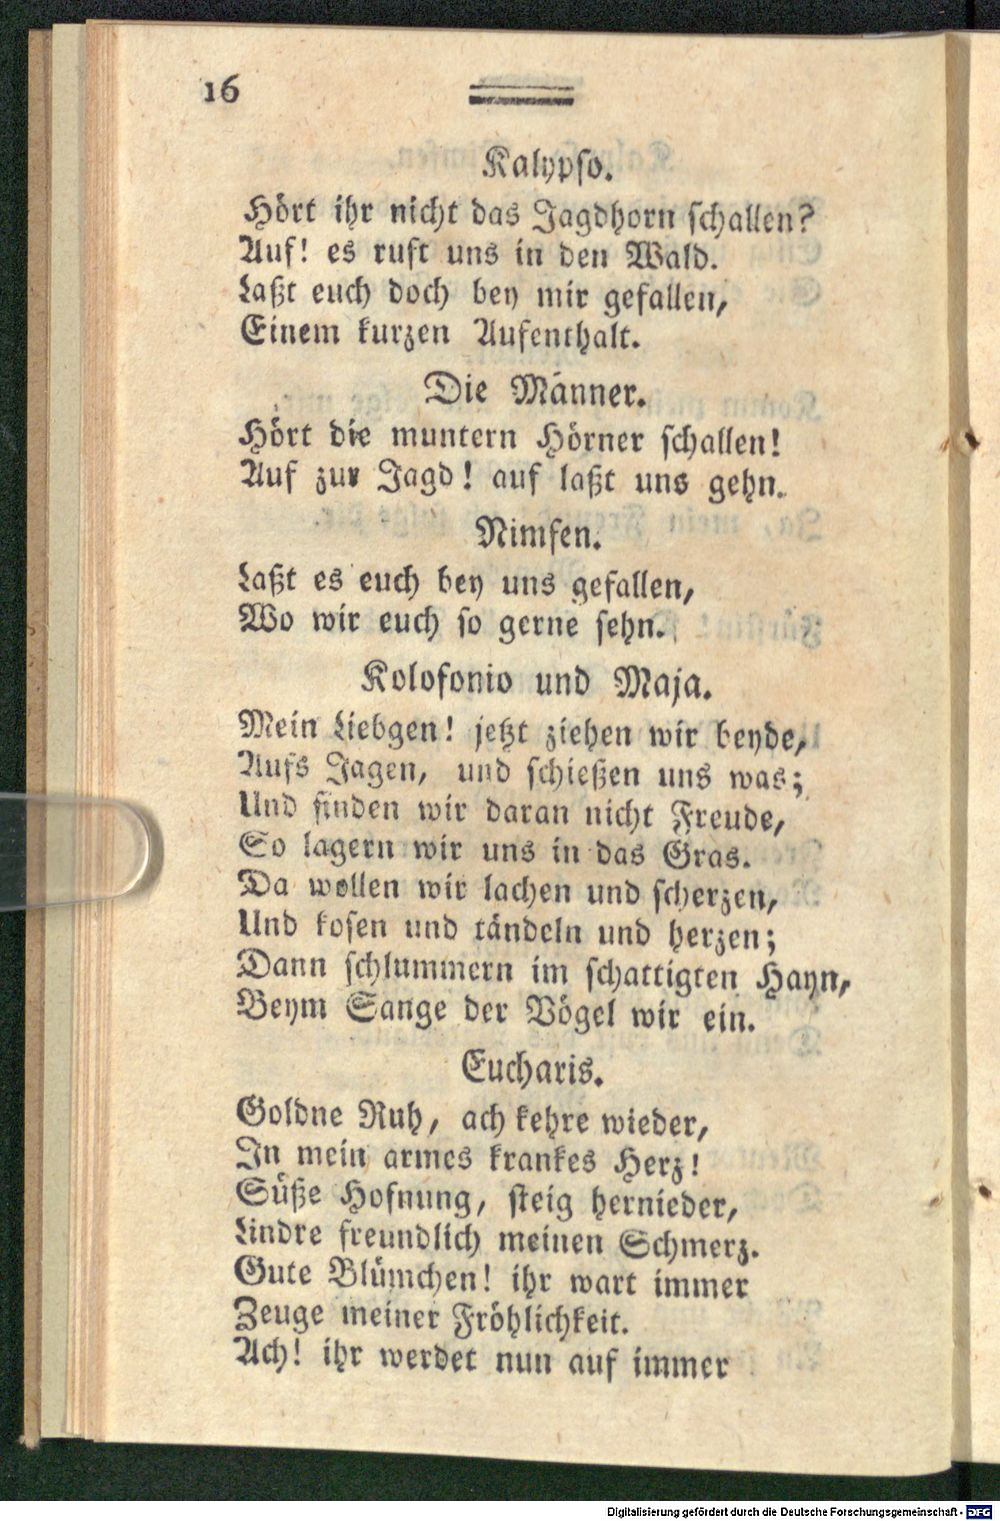 16
Kalypso.
Hört ihr nicht das Jagdhorn schallen?
Auf! es ruft uns in den Wald.
Laßt euch doch bey mir gefallen,
Einem kurzen Aufenthalt.
Die Männer.
Hört die muntern Hörner schallen!
Auf zur Jagd! auf laßt uns gehn.
Nimfen.
Laßt es euch bey uns gefallen,
Wo wir euch so gerne sehn.
Kolofonio und Maja.
Mein Liebgen! jetzt ziehen wir beyde,
Aufs Jagen, und schießen uns was;
Und finden wir daran nicht Freude,
So lagern wir uns in das Gras.
Da wollen wir lachen und scherzen,
Und kosen und tändeln und herzen;
Dann schlummern im schattigten Hayn,
Beym Sange der Vögel wir ein.
Eucharis.
Goldne Ruh, ach kehre wieder,
In mein armes krankes Herz!
Süße Hofnung, steig hernieder,
Lindre freundlich meinen Schmerz.
Gute Blümchen! ihr wart immer
Zeuge meiner Fröhlichkeit.
Ach! ihr werdet nun auf immer
Digitalisierung gefördert durch die Deutsche Forschungsgemeinschaft - DFG